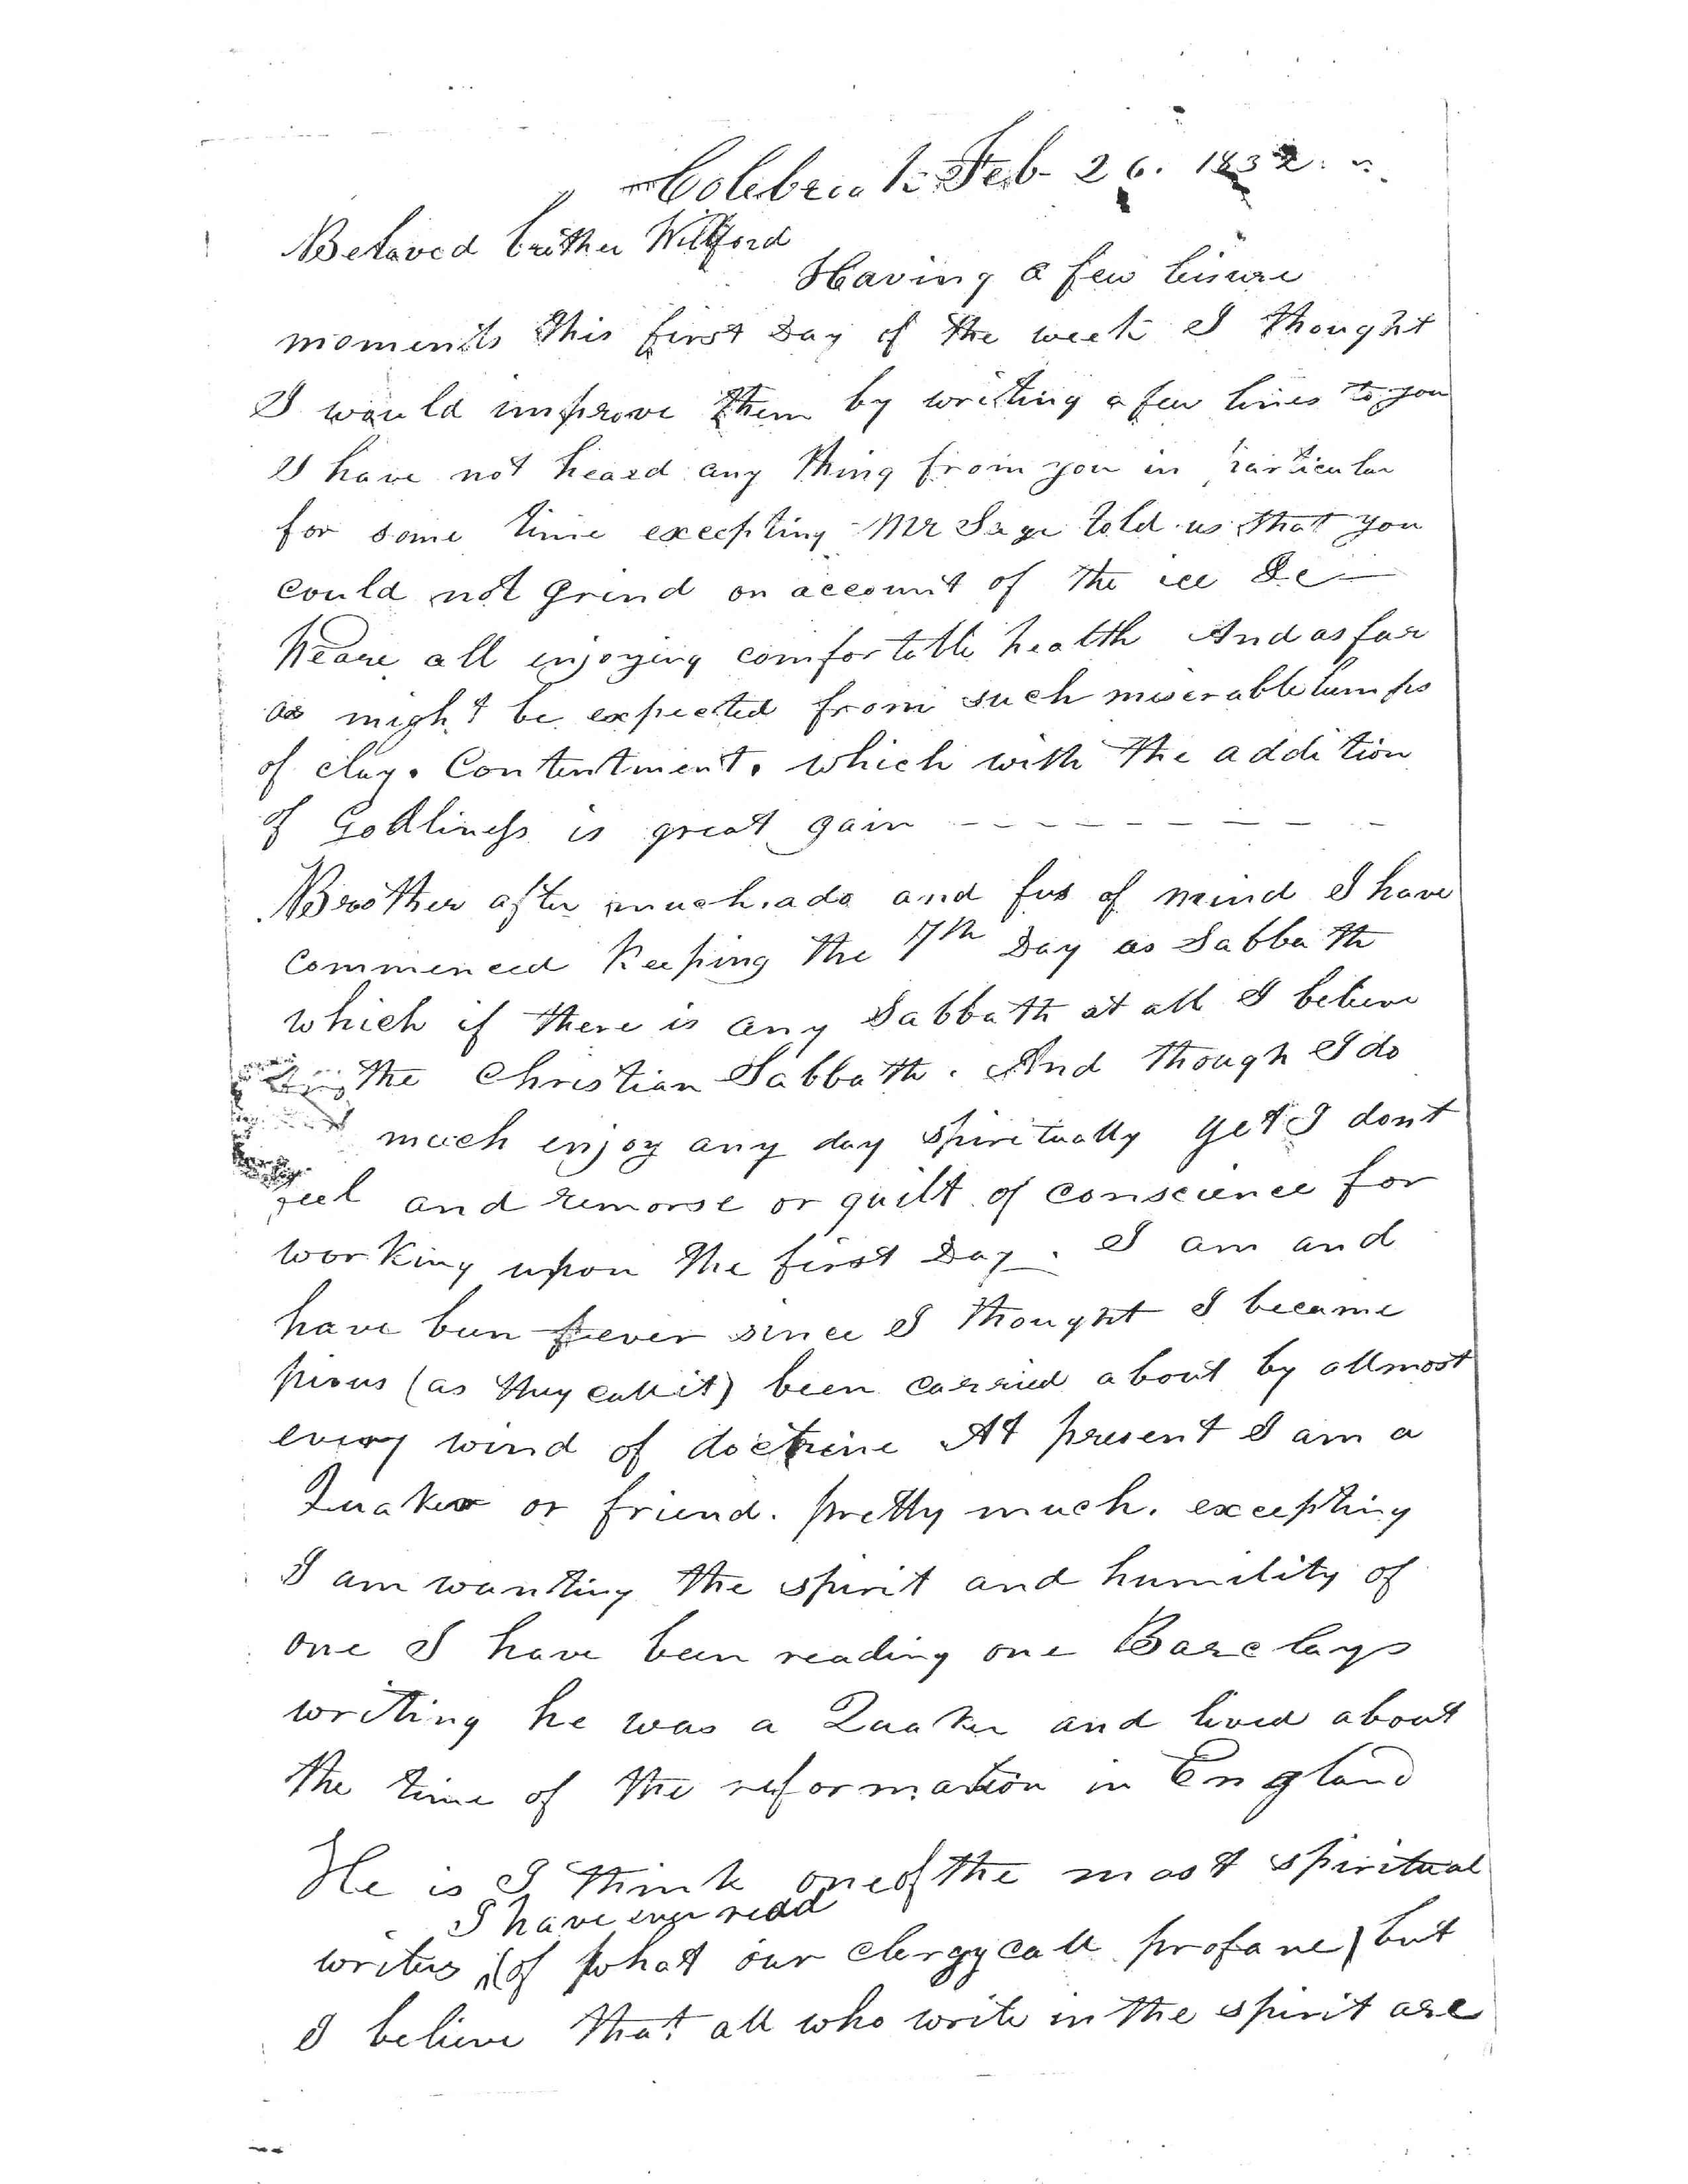 Colebrook Feb 26. 1832.
Beloved brother Wilford
Having a few leisure
moments this first Day of the week I thought
I would improve them by writing a few lines to you
I have not heard any thing from you in particular
for some time excepting Mr Sage told us that you
could not grind on account of the ice &c—
We are all enjoying comfortable health And as far
as might be expected from such miserable lumps
of clay. Contentment. which with the addition
of Godliness is great gain — — — — — — — —
Brother after much ado and fus of mind I have
commenced Keeping the 7th Day as Sabbath
which if there is any Sabbath at all I believe
the Christian Sabbath. And though I do
much enjoy any day spiritually yet I dont
feel and remorse or guilt of conscience for
working upon the first Day. I am and
have been ever since I thought I became
pious (as they call it) been carried about by allmost
every wind of doctrine At present I am a
Quaker or friend. pretty much. excepting
I am wanting the spirit and humility of
one I have been reading one Barclays
writing he was a Quaker and lived about
the time of the reformation in England
He is I think one of the most spiritual
I have ever read
writers (of what our clergy call profane) but
I believe that all who write in the spirit are